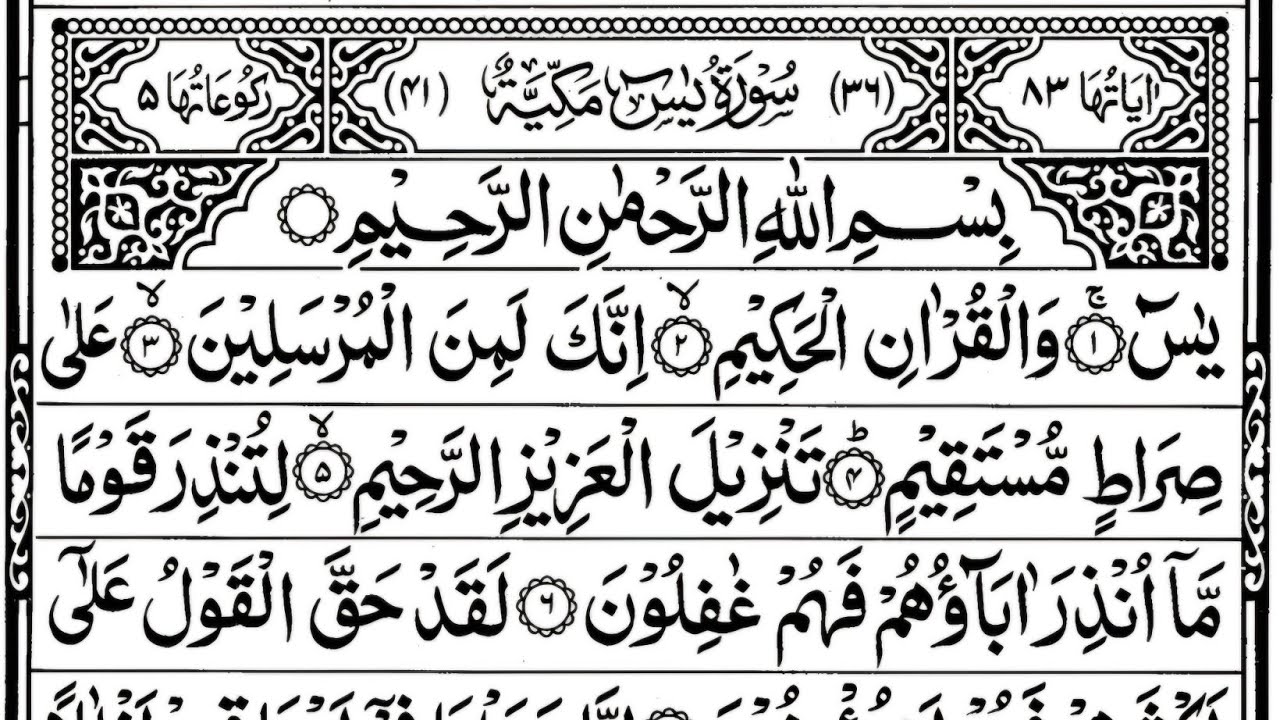 اٰيَاتُهَا ٨٣ (٣٦) سُوْرَةُ يٰسٓ مَكِّيَّةٌ (۴١) رُكُوْعَاتُهَا ۵
بِسْمِ اللّٰهِ الرَّحْمٰنِ الرَّحِيْمِ
يٰسٓ ۚ﴿١﴾ وَالْقُرْاٰنِ الْحَكِيْمِ ۙ﴿٢﴾ اِنَّكَ لَمِنَ الْمُرْسَلِيْنَ ۙ﴿٣﴾ عَلٰى
صِرَاطٍ مُّسْتَقِيْمٍ ؕ﴿۴﴾ تَنْزِيْلَ الْعَزِيْزِ الرَّحِيْمِ ۙ﴿۵﴾ لِتُنْذِرَ قَوْمًا
مَّاۤ اُنْذِرَ اٰبَآؤُهُمْ فَهُمْ غٰفِلُوْنَ ﴿۶﴾ لَقَدْ حَقَّ الْقَوْلُ عَلٰٓى